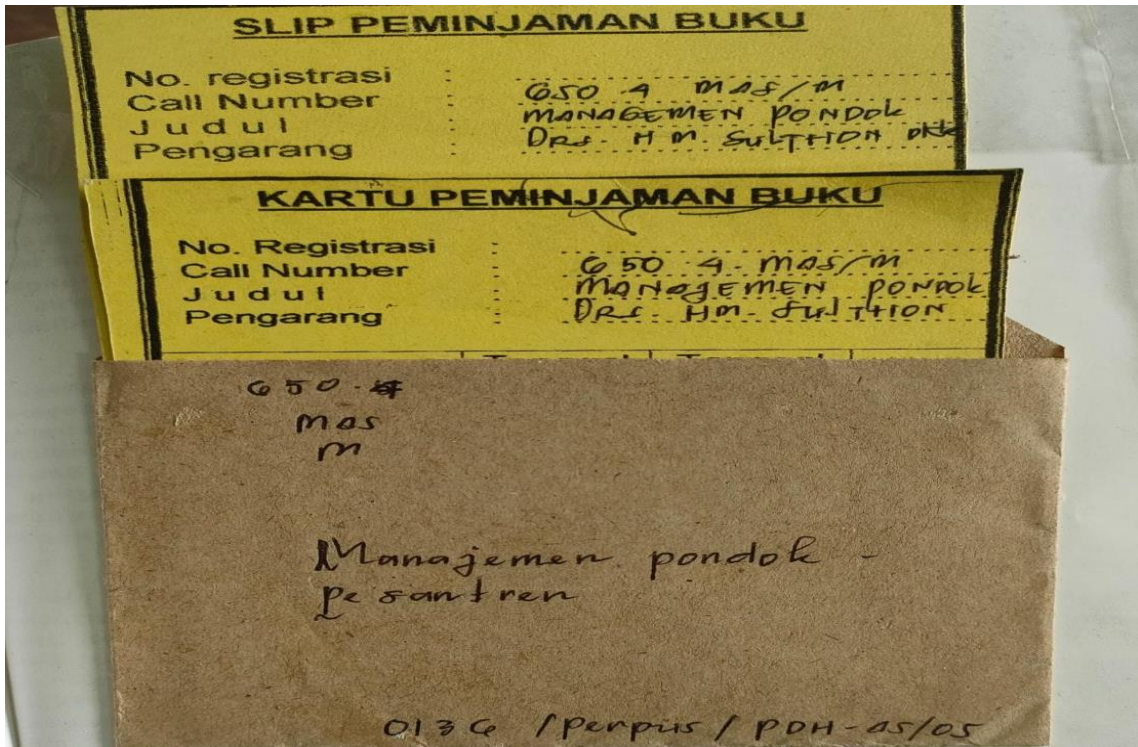 SLIP PEMINJAMAN BUKU
No. registrasi :
Call Number : 650.4 MAS/M
Judul : MANAGEMEN PONDOK
Pengarang : DRS. H M. SULTHON DKK
KARTU PEMINJAMAN BUKU
No. Registrasi :
Call Number : 650.4. MAS/M
Judul : MANAGEMEN PONDOK
Pengarang : DRS. HM. SULTHON
650.4
MAS
M
Manajemen pondok -
Pesantren
0136 / Perpus / PDH-AS/05